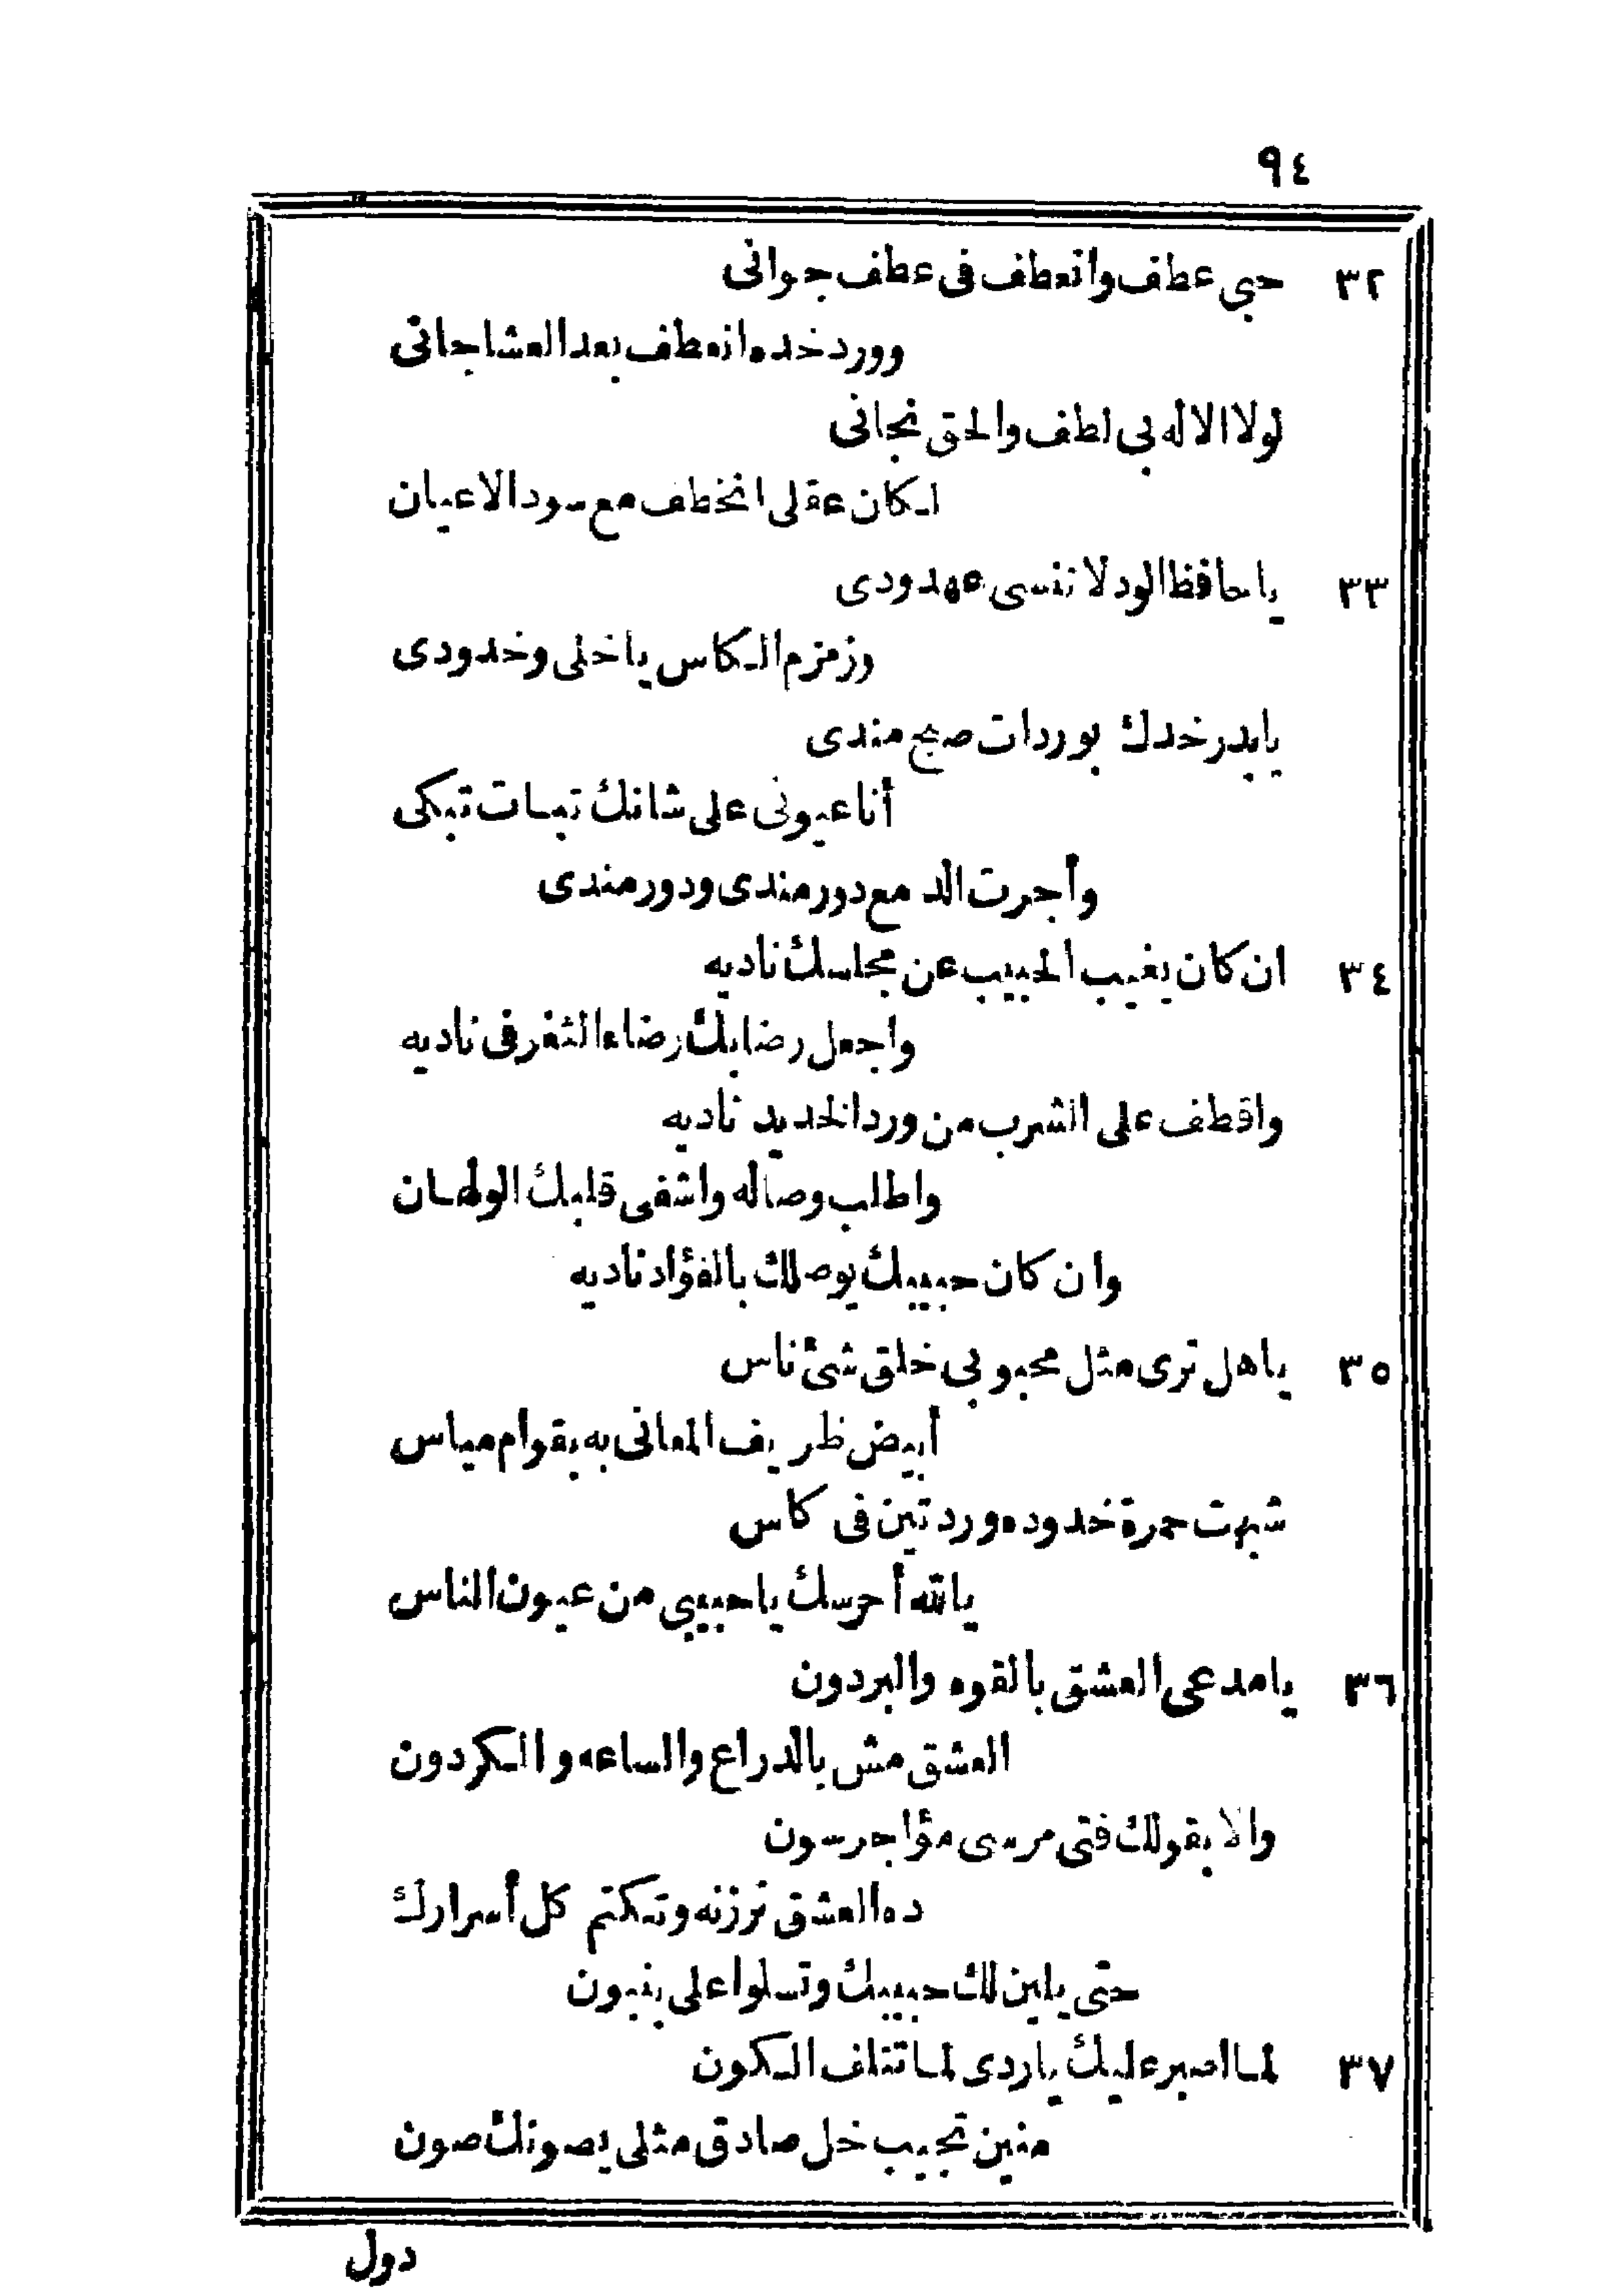 ٩٤
٣٢ حبي عطف وانعطف فى عطف جوانى
وورد خده انعطف بعد العشا جانى
لولا الاله بى لطف والحق نجانى
لكان عقلى انخطف مع سود الاعيان
٣٣ يا حافظ الود لا تنسى عهدودى
وزمزم الكاس يا خلى وخدودى
يا بدر خدك بوردات صبح مندى
أنا عيونى على شانك تبات تبكى
وأجرت الد مع دور مندى ودور مندى
٣٤ ان كان يغيب الحبيب عن مجلسك ناديه
واجعل رضابك رضاء الثغر فى ناديه
واقطف على الشرب من ورد الخديد ناديه
واطلب وصاله واشفى قلبك الولهان
وان كان حبيبك يوصلك بالفؤاد ناديه
٣٥ يا هل ترى مثل محبوبى خلق شئ ناس
أبيض ظريف المعانى به بقوام مياس
شبهت حمرة خدوده وردتين فى كاس
يا الله أحرسك يا حبيبى من عيون الناس
٣٦ يا مدعى العشق بالقوه والبردون
العشق مش بالدراع والساعه والكردون
والا يقولك فتى مرسى مؤاجر سون
ده العشق ترزنه وتكتم كل أسرارك
حتى يلين لك حبيبك وتسلوا على ينبون
٣٧ لما اصبر عليك ياردى لما تتلف الكون
منين تجيب خل صادق مثلى يصونك صون
دول